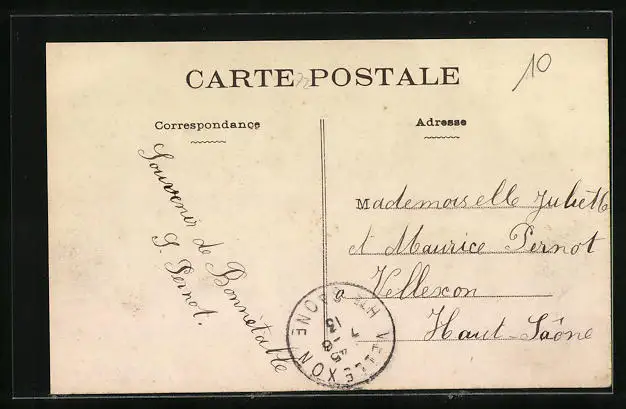 CARTE POSTALE
10
Correspondance
Adresse
Souvenir de Bonnétable
J. Pernot.
Mademoiselle Juliette
et Maurice Pernot
Vellexon
Haut-Saône
VELLEXON
HTE SAONE